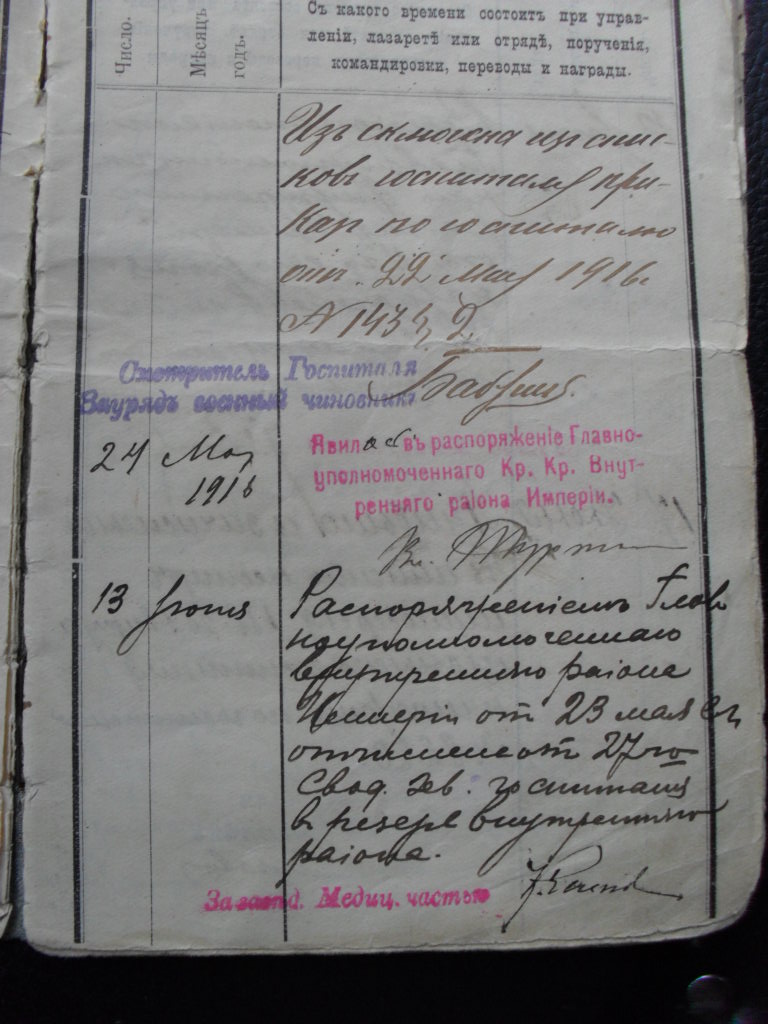 Число.
Мѣсяцъ
годъ.
Съ какого времени состоитъ при управ-
леніи, лазаретѣ или отрядѣ, порученія,
командировки, переводы и награды.
изъ спис-
ковъ госпиталя при-
каз по госпиталю
от. 22 Мая 1916 г.
Смотритель Госпиталя
Зауряд военный чиновникъ
24 Мая
1916
Явилась въ распоряженіе Главно-
уполномоченнаго Кр. Кр. Внут-
ренняго раіона Имперіи.
13 Іюня
Распоряженіемъ Глав
ноуполномоченнаго
внутренняго раіона
Имперіи от 23 мая с.г.
отчислена от 27го
Свод. Ев. госпиталя
в резерв внутренняго
раіона.
Завѣд. Медиц. частью